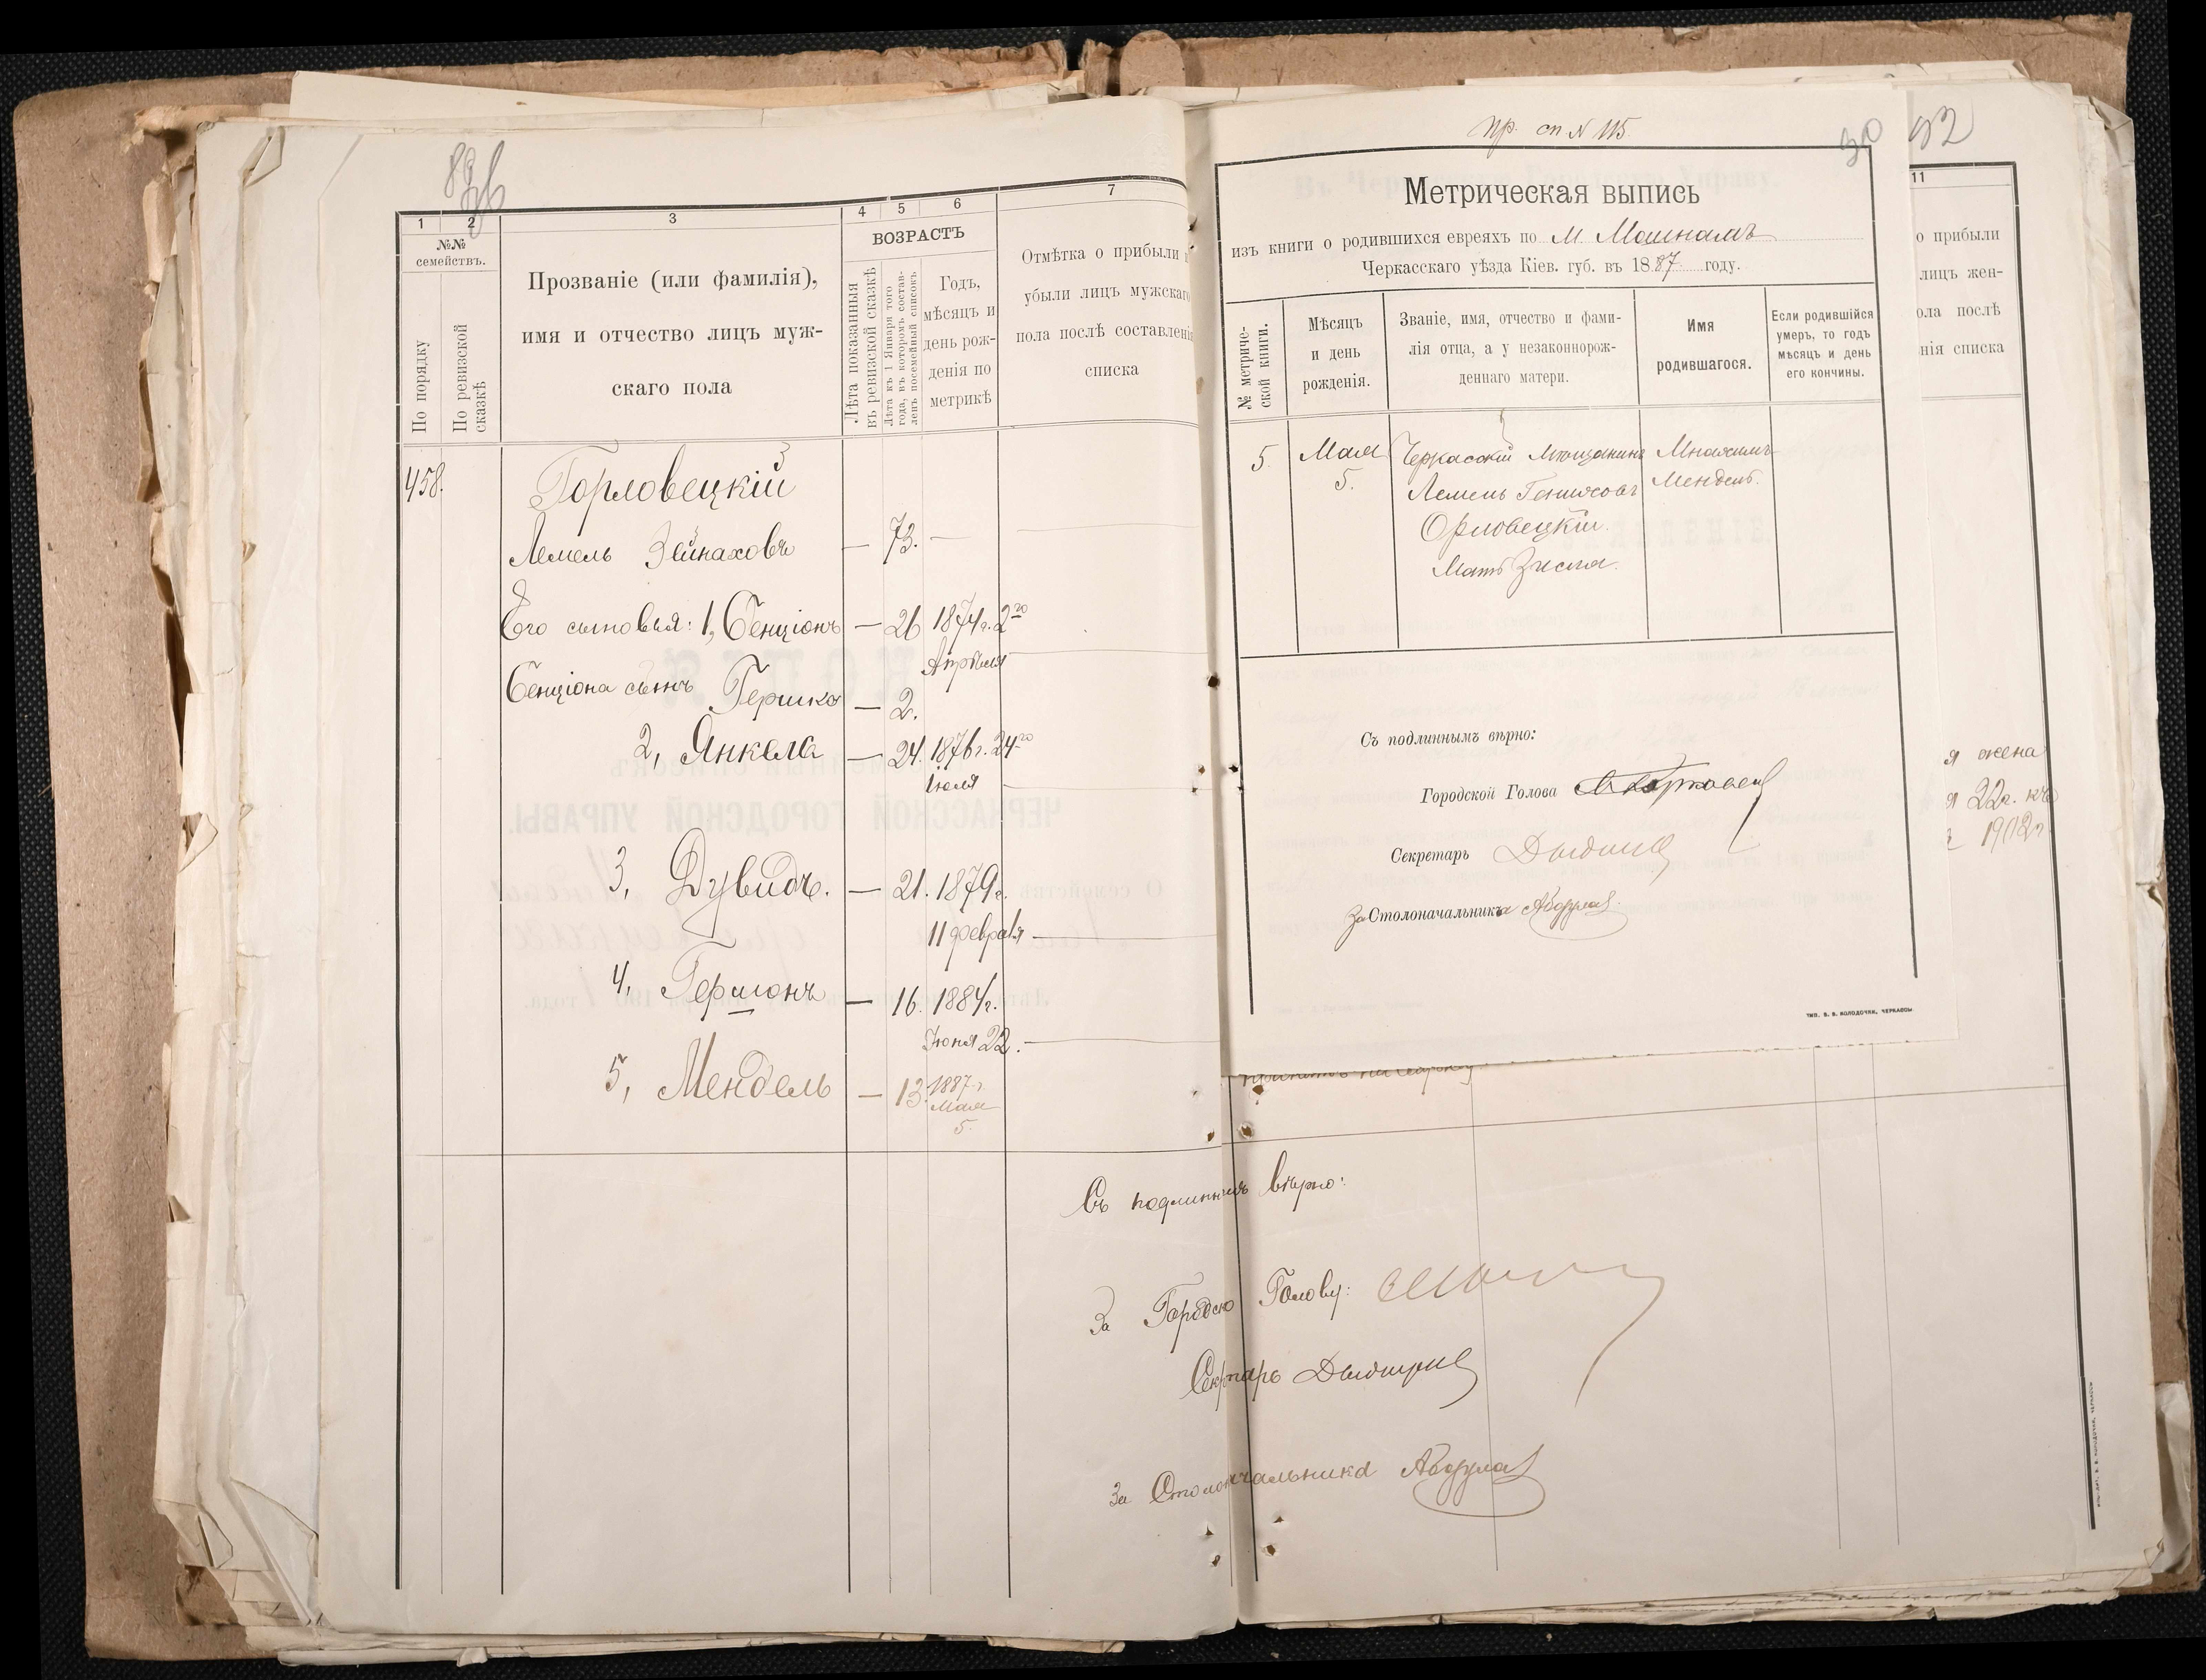 89
1 2 3 4 5 6 7
№№ семействъ.
По порядку
По ревизской сказкѣ
Прозваніе (или фамилія),
имя и отчество лицъ муж-
скаго пола
ВОЗРАСТЪ
Лѣта показанныя
въ ревизской сказкѣ
Лѣта къ 1 Января того
года, въ которомъ состав-
ленъ посемейный списокъ
Годъ,
мѣсяцъ и
день рож-
денія по
метрикѣ
Отмѣтка о прибыли и
убыли лицъ мужскаго
пола послѣ составленія
списка
458. Горловецкій
Лемель Зейнаховъ — 73. —
Его сыновья: 1, Бенціонъ — 26 1874 г. 2го
Апрѣля
Бенціона сынъ Гершко — 2.
2, Янкель — 24. 1876 г. 24го
Іюля
3, Дувидъ. — 21. 1879 г.
11 февраля
4, Гершонъ — 16. 1884 г.
Іюня 22.
5, Мендель — 13. 1887 г.
Мая
5.
Съ подлиннымъ вѣрно:
За Городско Голову:
Секртарь
За Столоначальника
пр. сп № 115
30
Метрическая выпись
изъ книги о родившихся евреяхъ по м. Мошнамъ
Черкасскаго уѣзда Кіев. губ. въ 1887 году.
№ метриче-
ской книги.
Мѣсяцъ
и день
рожденія.
Званіе, имя, отчество и фами-
лія отца, а у незаконнорож-
деннаго матери.
Имя
родившагося.
Если родившійся
умеръ, то годъ
мѣсяцъ и день
его кончины.
5. Мая Черкасскій Мѣщанинъ Мнахимъ-
5. Лемель Гениховъ Мендель.
Орловецкій.
Мать Зисля.
Съ подлиннымъ вѣрно:
Городской Голова
Секретарь
За Столоначальника
ТИП. В. В. КОЛОДОЧКИ, ЧЕРКАССЫ
92
11
о прибыли
лицъ жен-
ола послѣ
нія списка
я жена
я 22 г. къ
1902 г.